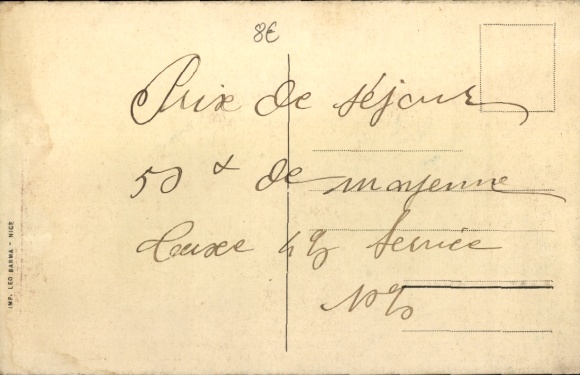 8€
Prix de séjour
50 f de moyenne
Taxe 4% Service
10%
IMP. LEO BARMA - NICE